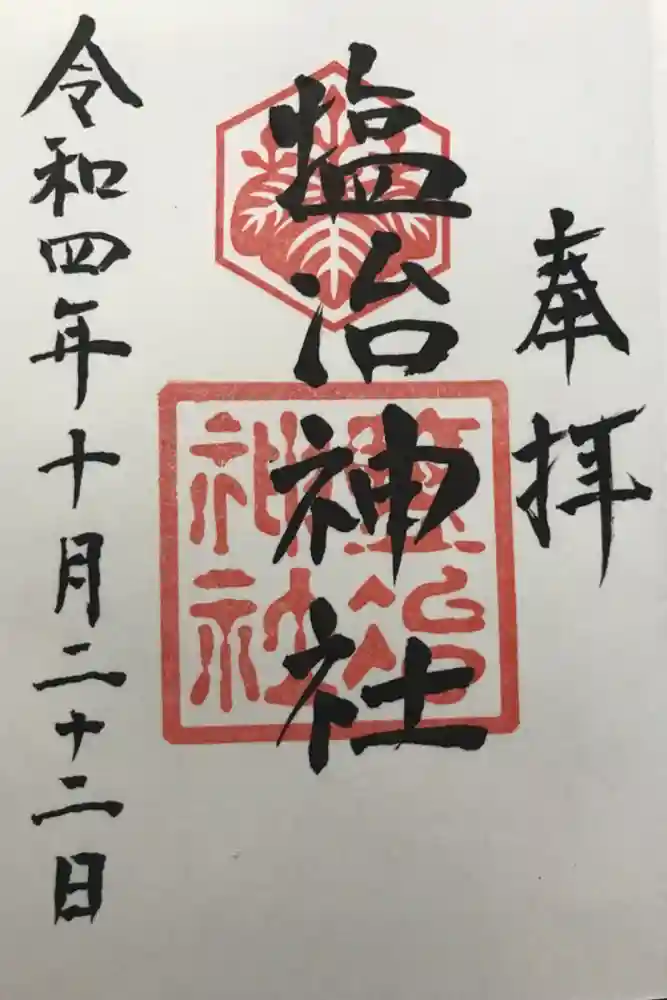 奉拝
塩冶神社
鹽冶
神社
令和四年十月二十二日